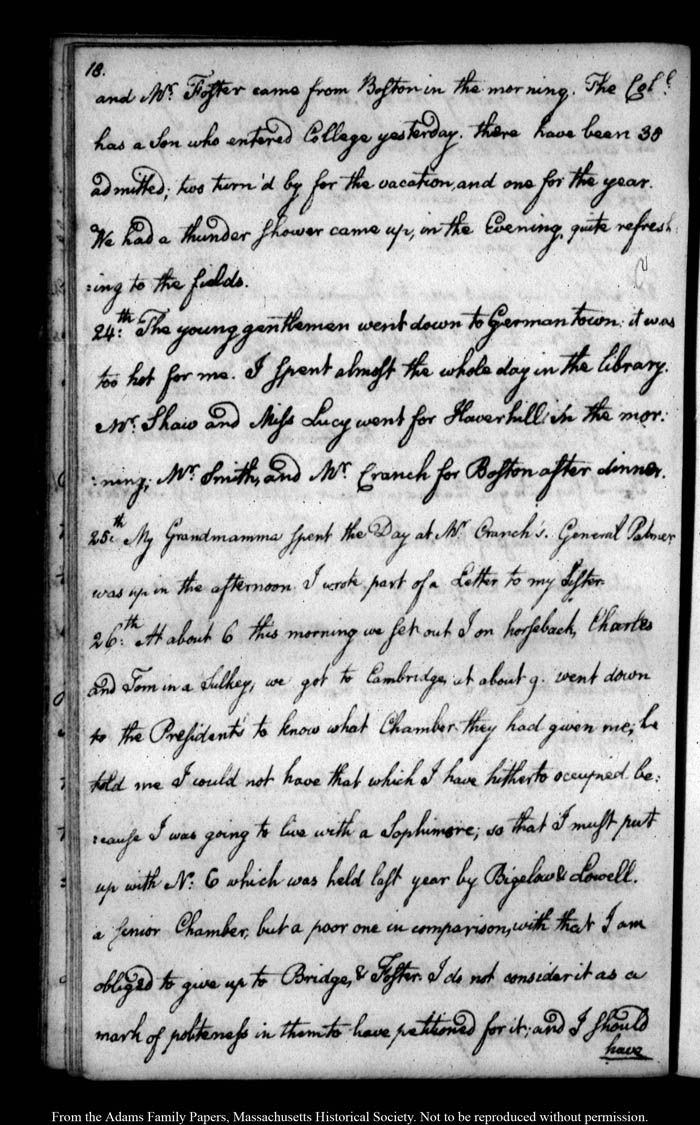 18.
and Mr. Foster came from Boston in the morning. The Colo.
has a Son who entered College yesterday. there have been 38
admitted; two turn'd by for the vacation, and one for the year.
We had a thunder shower came up, in the Evening, quite refresh:
:ing to the fields.
24th: The young gentlemen went down to Germantown: it was
too hot for me. I spent almost the whole day in the library.
Mr. Shaw and Miss Lucy went for Haverhill in the mor:
:ning; Mr. Smith, and Mr. Cranch for Boston after dinner.
25th My Grandmamma spent the Day at Mr. Cranch's. General Palmer
was up in the afternoon. I wrote part of a Letter to my Sister.
26th: At about 6 this morning we set out I on horseback, Charles
and Tom in a Sulkey, we got to Cambridge, at about 9. went down
to the President's to know what Chamber they had given me; he
told me I could not have that which I have hitherto occupied be:
:cause I was going to live with a Sophimore; so that I must put
up with N: 6 which was held last year by Bigelow & Lowell.
a Junior Chamber, but a poor one in comparison, with that I am
obliged to give up to Bridge, & Foster. I do not consider it as a
mark of politeness in them to have petitioned for it; and I should
have
From the Adams Family Papers, Massachusetts Historical Society. Not to be reproduced without permission.